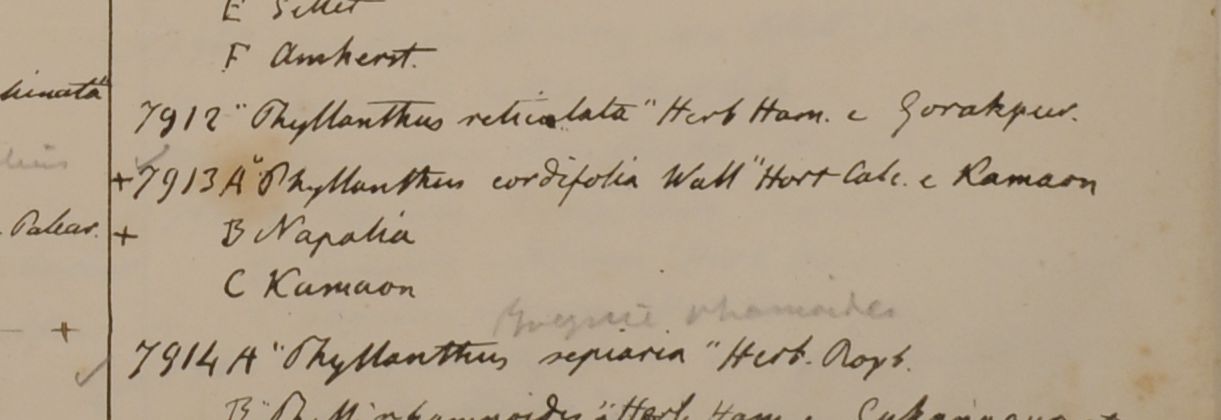 E Sillet
F Amherst.
7912 "Phyllanthus reticulata" Herb Ham. e Gorakpur.
+ 7913 A "Phyllanthus cordifolia Wall" Hort Calc. e Kamaon
+ B Napalia
C Kamaon
rhamnoides
7914 A "Phyllanthus sepiaria" Herb. Roxb.
B "Phyll rhamnoides" Herb. Ham.